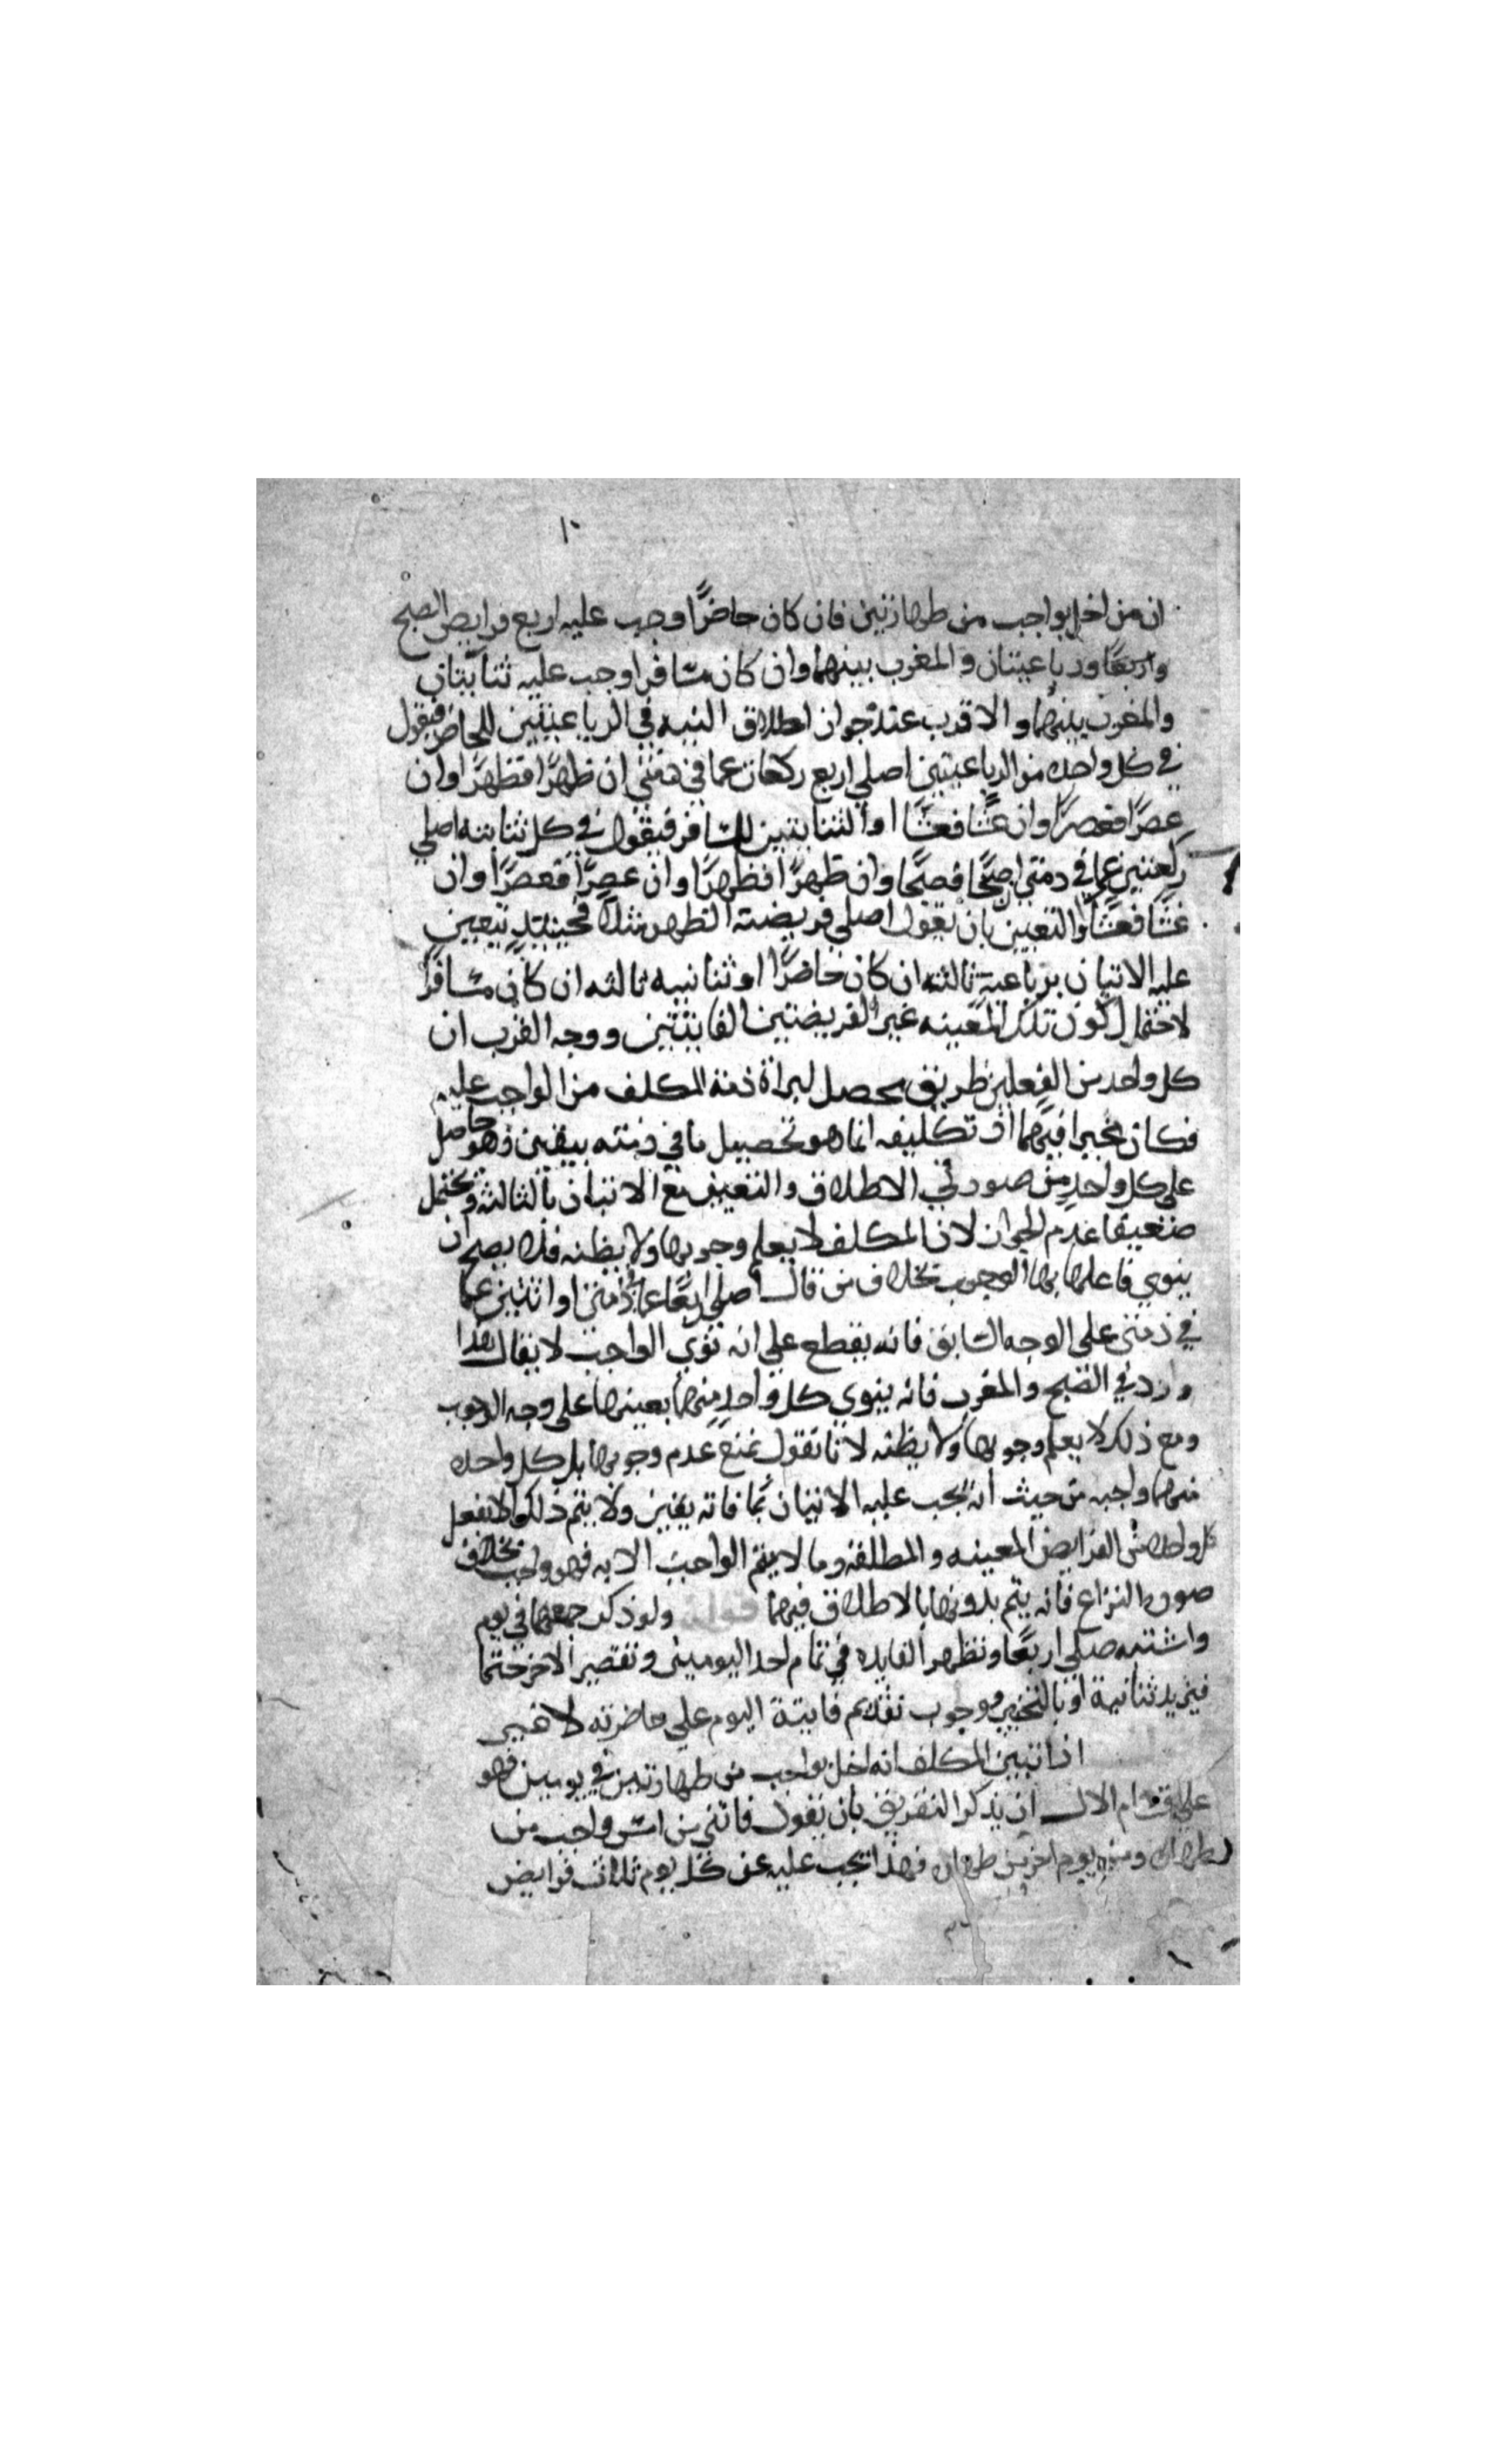 ١٠
ان من اخل بواجب من طهارتين فان كان حاضرًا وجب عليه اربع فرايض الصبح
واربعًا ورباعيتان والمغرب بينهما وان كان مسافرا وجب عليه ثنائيتان
والمغرب بينهما والاقرب عند جواز اطلاق النيه في الرباعيتين للحاضر فيقول
في كل واحده من الرباعيتين اصلي اربع ركعات عما في ذمتي ان ظهرًا فظهرًا وان
عصرًا فعصرًا وان عشًا فعشًا او الثنائيتين للمسافر فيقول في كل ثنائيه اصلي
ركعتين عما في ذمتي ان صبحًا فصبحًا وان ظهرًا فظهرًا وان عصرًا فعصرًا وان
عشًا فعشًا والتعيين بان يقول اصلي فريضة الظهر مثلا فحينيذٍ يتعين
عليه الاتيان برباعيةٍ ثالثه ان كان حاضرًا او ثنائيه ثالثه ان كان مسافرًا
لاحتمال كون تلك المعينه غير الفريضتين الفايتتين ووجه القرب ان
كل واحد من الفعلين طريق محصل لبراة ذمة المكلف من الواجب عليه
فكان مخيرا فيهما اذ تكليفه انما هو تحصيل ما في ذمته بيقين وهو حاصل
على كل واحدٍ من صورتي الاطلاق والتعيين مع الاتيان بالثالثة ويحتمل
ضعيفا عدم الجواز لان المكلف لا يعلم وجوبها ولا يظنه فلا يصح ان
ينوي فاعلها بها الوجوب بخلاف من قال اصلي اربعًا عما في ذمتي او اثنتين عما
في ذمتي على الوجه السابق فانه يقطع على انه نوى الواجب لا يقال هذا
وارد في الصبح والمغرب فانه ينوي كل واحدٍ منهما بعينها على وجه الوجوب
ومع ذلك لا يعلم وجوبها ولا يظنه لانا نقول نمنع عدم وجوبها بل كل واحده
منهما واجبه من حيث انه يجب عليه الاتيان بما فاته يقين ولا يتم ذلك الا بفعل
كل واحده من الفرايض المعينه والمطلقه وما لا يتم الواجب الا به فهو واجب بخلاف
صورة النزاع فانه يتم بدونها بالاطلاق فيهما قوله ولو ذكر جمعهما في يوم
واشتبه صلى اربعًا وتظهر الفايده في تمام احد اليومين وتقصير الاخر حتما
فيزيد ثنائية او بالتخيير ووجوب تقديم فايتة اليوم على حاضرته لا غير
اذا تبين المكلف انه اخل بواجب من طهارتين في يومين فهو
على اقسام الاول ان يذكر التفريق بان يقول فاتني من امس واجب من
طهارة ومن يوم اخر من طهارة فهذا يجب عليه عن كل يوم ثلاث فرايض